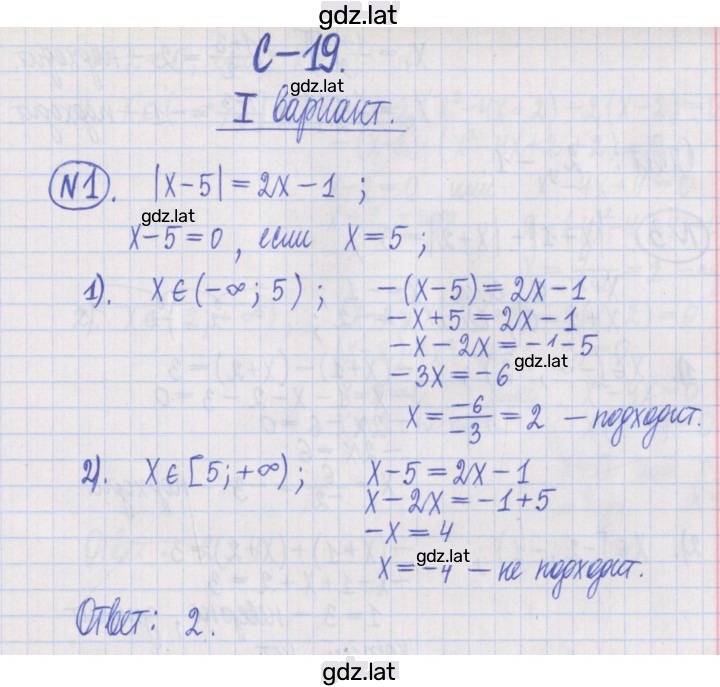 gdz.lat
С-19.
gdz.lat
I вариант.
№1. |x-5|=2x-1 ;
gdz.lat
x-5=0, если x=5 ;
1). x∈(-∞; 5) ; -(x-5)=2x-1
-x+5=2x-1
-x-2x=-1-5
gdz.lat
-3x=-6
x=\frac{-6}{-3}=2 - подходит.
2). x∈[5;+∞) ; x-5=2x-1
x-2x=-1+5
-x=4
gdz.lat
x=-4 - не подходит.
Ответ: 2.
gdz.lat